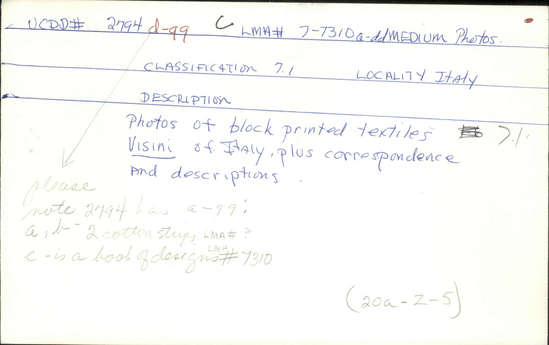 UCDD# 2794 d-99 C LMA# 7-7310 a-dd MEDIUM Photos.
CLASSIFICATION 7.1 LOCALITY Italy
DESCRIPTION
Photos of block printed textiles 7.1
VISINI of Italy, plus correspondence
and descriptions.
please
note 2794 has a-99:
a, b - 2 cotton strips, LMA# ?
c - is a book of designs LMA# 7310
(20a-Z-5)